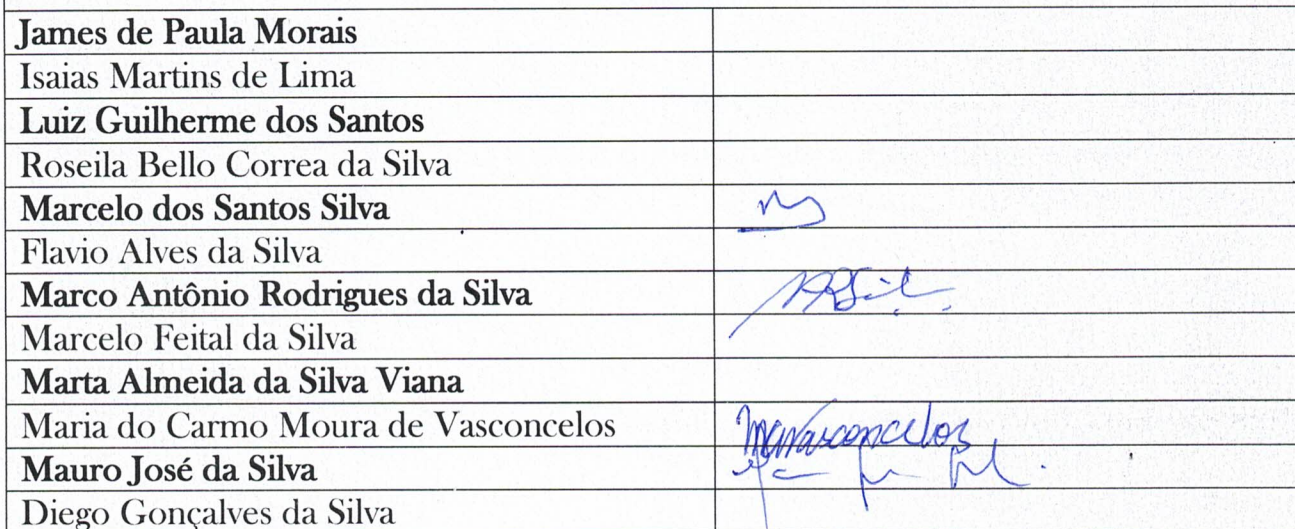 James de Paula Morais
Isaias Martins de Lima
Luiz Guilherme dos Santos
Roseila Bello Correa da Silva
Marcelo dos Santos Silva
Flavio Alves da Silva
Marco Antônio Rodrigues da Silva
Marcelo Feital da Silva
Marta Almeida da Silva Viana
Maria do Carmo Moura de Vasconcelos
Mauro José da Silva
Diego Gonçalves da Silva